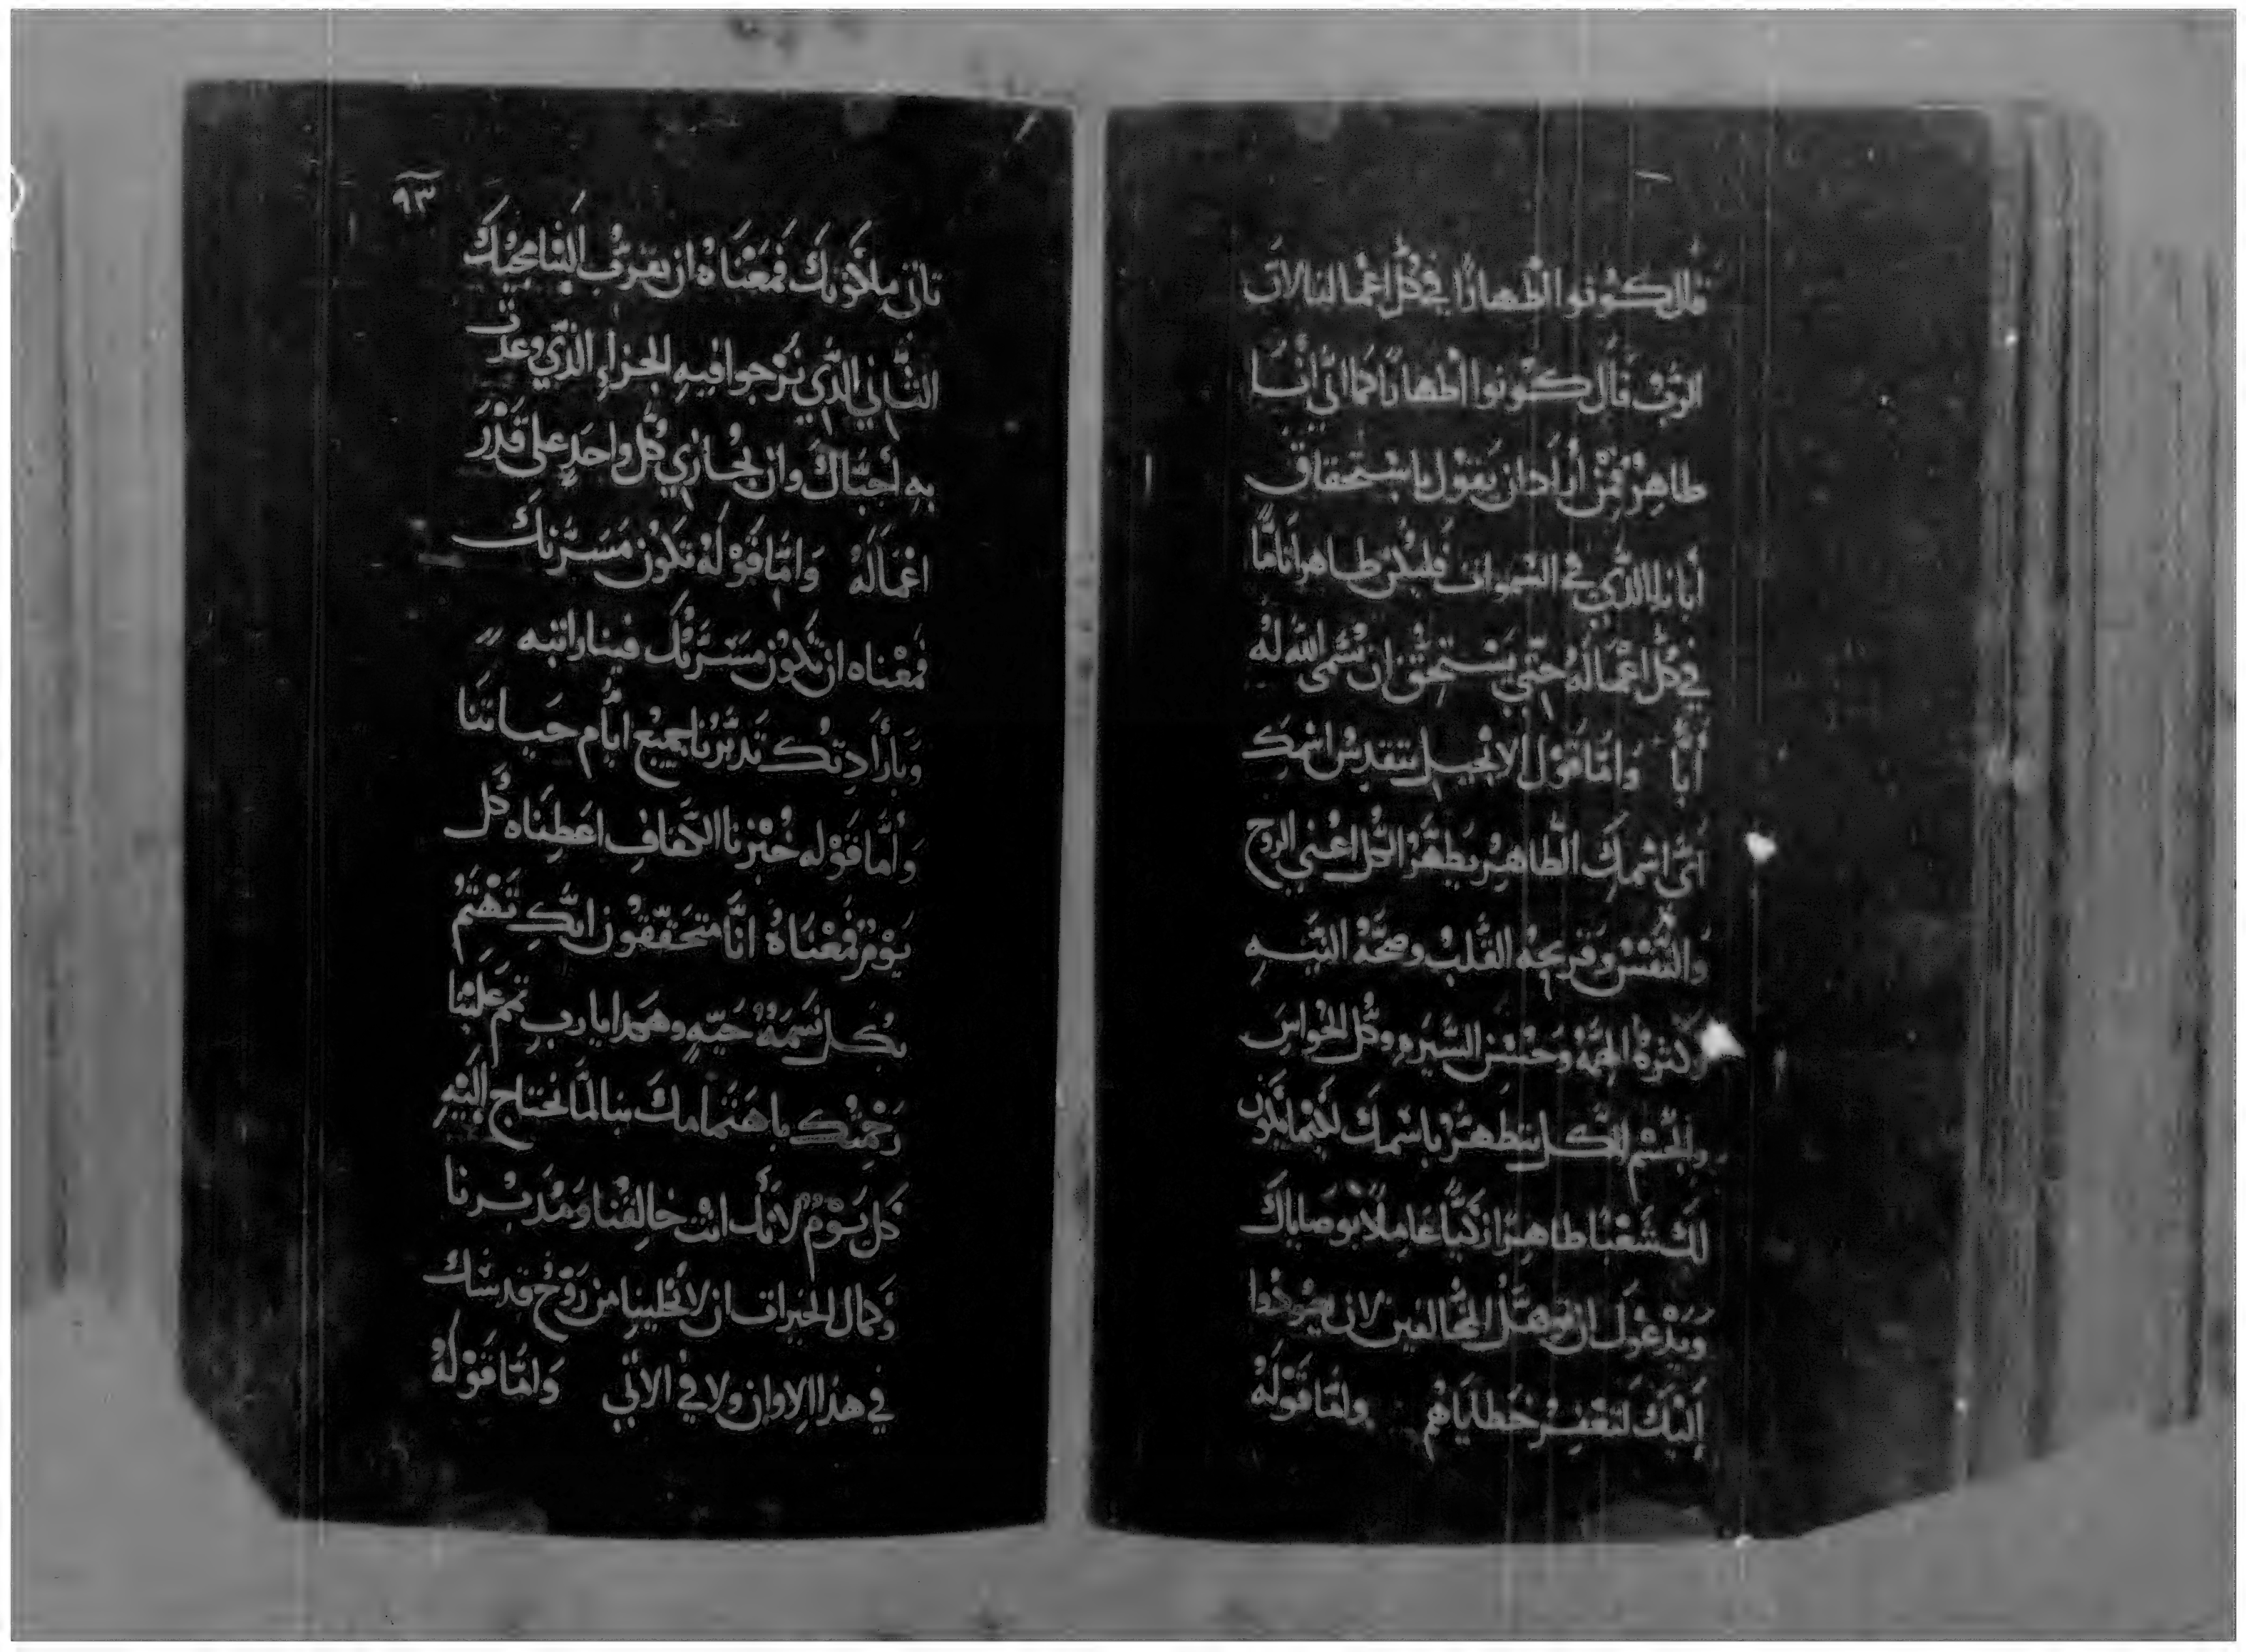 قال كونوا اطهارًا في كل اعمالنا لان
الرب قال كونوا اطهارًا كما اني انا
طاهر فمن أراد ان يقول باستحقاق
أبانا الذي في السموات فليكن طاهرًا تامًّا
في كل اعماله حتي يستحق ان يسمى الله له
أبًا وامّا قول الانجيل يتقدس اسمك
اي اسمك الطاهر يطهر الكل اعني الروح
والنفس وفريحه القلب وصحة النيه
كثرة المحبه وحسن السيره وكل الحواس
والجسم الكل يتطهر باسمك لكيما نكون
لك شعبًا طاهرًا زكيًا عاملاً بوصاياك
ويدعوك ان توهل المخالفين لان يعودوا
إليك لتغفر خطاياهم وامّا قوله
٩٣
تاتي ملكوتك فمعناه ان يقرب الينا مجيك
الثاني الذي نرجوا فيه الجزاء الذي وعدت
به أحبّاك وان تجازي كل واحد على قدر
اعماله وامّا قوله تكون مسرتك
فمعناه ان تكون مسرتك فينا راتبه
وبارادتك تدبرنا جميع ايام حياتنا
وأمّا قوله خبزنا الكفاف اعطيناه كل
يوم فمعناه انّا متحققون انك تهتم
بكل نسمة حيه وهكذا يا رب تمم علينا
رحمتك باهتمامك بنا لما نحتاج إليه
كل يوم لأنك انت خالقنا ومدبرنا
وكمال الخيرات ان لا تخلينا من روح قدسك
في هذا الاوان ولا في الاتي وامّا قوله